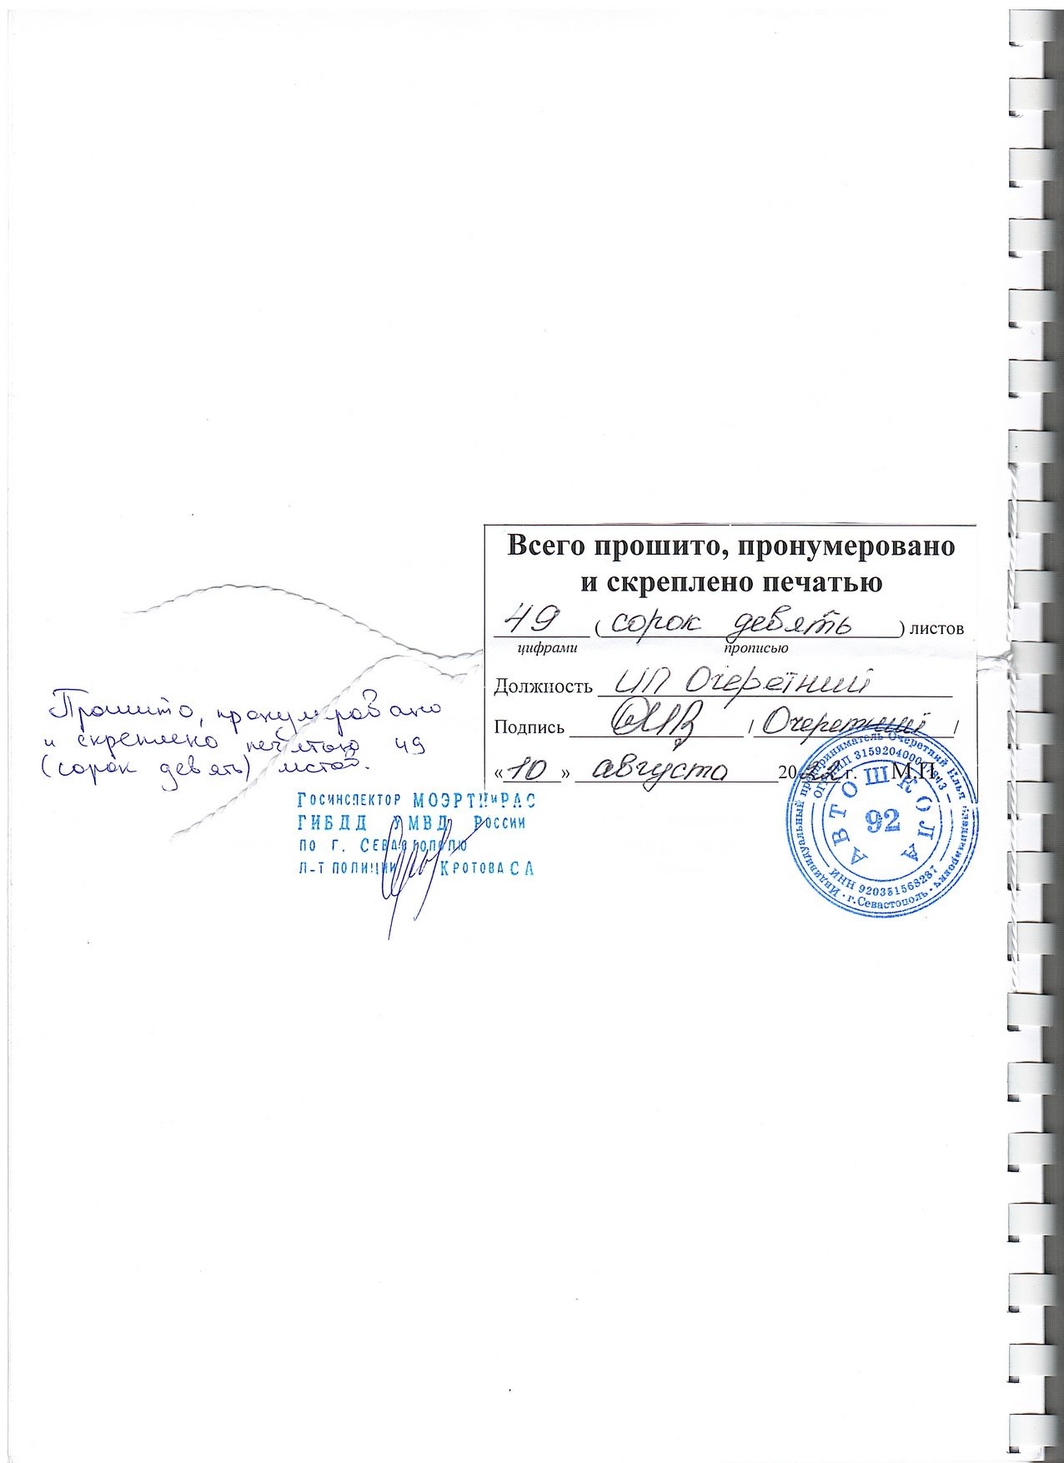 Всего прошито, пронумеровано
и скреплено печатью
49 (сорок девять) листов
цифрами прописью
Должность ИП Очеретний
Подпись / Очеретний /
«10» августа 2022 г. М.П.
Прошито, пронумеровано
и скреплено печатью 49
(сорок девять) листов.
Госинспектор МОЭРТНиРАС
ГИБДД УМВД России
по г. Севастополю
л-т полиции Кротова С А
Индивидуальный предприниматель Очеретний Илья Владимирович
г.Севастополь
ОГРНИП
ИНН 920351568287
АВТОШКОЛА
92